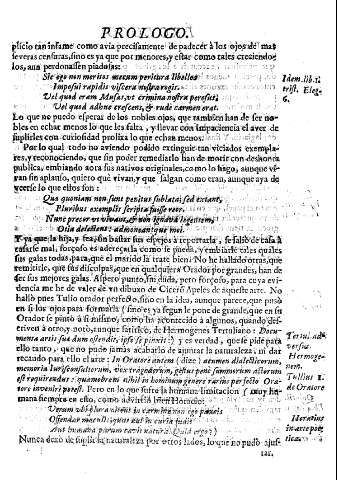 PROLOGO.
plicio tan infame como avia precisamente de padecer à los ojos de mas
severas censuras, sino es ya que por menores, y estar como tales creciendo
los, aun perdonassen piadosas:
Sic ego non meritos mecum peritura libellos
Imposui rapidis viscera nostra rogis.
Vel quod eram Musas, ut crimina nostra perosus,
Vel quod adhuc crescens, & rude carmen erat.
Idem. lib. 1.
trist. Eleg.
6.
Lo que no puedo esperar de los nobles ojos, que tambien han de ser no-
bles en echar menos lo que les falta, y llevar con impaciencia el aver de
suplirles con curiosidad poliza lo que echan menos.
Por lo qual todo no aviendo podido extinguir tan viciados exempla-
res, y reconociendo, que sin poder remediarlo han de morir con deshonra
publica, embiando aora sus nativos originales, como lo hago, aunque
ran sin aplauso, quiero que vivan, y que salgan como eran, aunque aya de
verse lo que ellos son:
Quæ quoniam non sunt penitus sublata, sed extant,
Pluribus exemplis scripta fuisse reor.
Nunc precor ut vivant, & non ignava legentem,
Otia delectent: admoneantque mei.
Y ya que la hija, y fea, sin bastar sus espejos à reportarla, se salió de casa à
casarse mal, forçoso es aderezarla como se pueda, y embiarle tales quales
sus galas todas, para que el marido la trate bien. No he hallado otras, que
remitirle, que sus disculpas, que en qualquiera Orador por grandes, han de
ser sus mejores galas. Aspero punto, sin duda, pero forçoso, para cuya
dencia me he de valer de un dibuxo de Cicero Apeles de aqueste arte. No
halló pues Tulio orador perfecto, sino en la idea, aunque parece, que puso
en sì los ojos para formarla
Orador se pintò à sì mismo, como ha acontecido à algunos, quando
à otro, y notò, aunque satirico, de Hermogenes Tertuliano: Docu-
menta artis suæ dum ostendit, ipse se pinxit:) y es verdad, que se pide para
ello tanto, que no pudo jamàs acabarlo de ajustar la naturaleza, ni dar
recaudo para ello el arte: In Oratore autem (dize) acumen dialecticorum,
memoria Iurisconsultorum, vox tragædorum, gestus pene summorum actorum
est requirendus: quamobrem nihil in hominum genere rarius perfecto Ora-
tore inveniri potest. Pero en lo que sufre la humana limitacion (muy hu-
mana siempre en esto, como advirtió bien Horacio:
Tertul. ad-
versus
Hermoge-
nem.
Tullius 1.
de Oratore
Verum ubi plura nitent in carmine non ego paucis
Offendar maculis: quas aut in curia fudit
Aut humana parum cavit natura. Quid ergo?)
Horatius
in arte poë-
tica.
Nunca dexò de suplir la naturaleza por otros lados, lo que no pudo ajus-
tar,